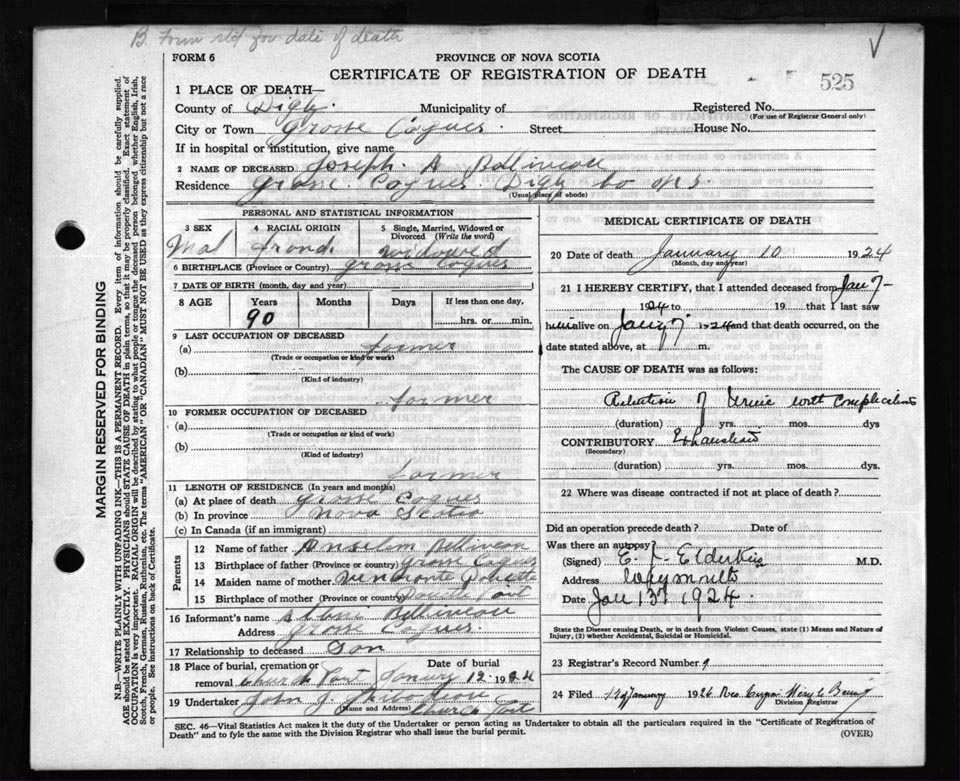 B. Form std for date of death
FORM 6
PROVINCE OF NOVA SCOTIA
CERTIFICATE OF REGISTRATION OF DEATH
525
1 PLACE OF DEATH—
County of Digby. Municipality of Registered No.
(For use of Registrar General only)
City or Town Grosse Coques. Street House No.
If in hospital or institution, give name
2 NAME OF DECEASED Joseph. A Belliveau
Residence Grosse Coques Digby Co N.S.
(Usual place of abode)
PERSONAL AND STATISTICAL INFORMATION
3 SEX 4 RACIAL ORIGIN 5 Single, Married, Widowed or Divorced (Write the word)
Mal widowed
6 BIRTHPLACE (Province or Country) Grosse Coques
7 DATE OF BIRTH (month, day and year)
8 AGE Years Months Days If less than one day,
90 hrs. or min.
9 LAST OCCUPATION OF DECEASED
(a) farmer
(Trade or occupation or kind of work)
(b)
(Kind of industry)
farmer
10 FORMER OCCUPATION OF DECEASED
(a)
(Trade or occupation or kind of work)
(b)
(Kind of industry)
farmer
11 LENGTH OF RESIDENCE (In years and months)
(a) At place of death Grosse Coques
(b) In province Nova Scotia
(c) In Canada (if an immigrant)
Parents
12 Name of father Anselm Belliveau
13 Birthplace of father (Province or country) Grosse Coques
14 Maiden name of mother
15 Birthplace of mother (Province or country)
16 Informant's name Belliveau
Address Grosse Coques.
17 Relationship to deceased Son
18 Place of burial, cremation or removal Church Point Date of burial January 12. 1924
19 Undertaker John J.
(Name and Address) Church Point
MEDICAL CERTIFICATE OF DEATH
20 Date of death January 10 1924
(Month, day and year)
21 I HEREBY CERTIFY, that I attended deceased from Jan 7-
1924 to 19 that I last saw
him alive on Jany 7. 1924 and that death occurred, on the
date stated above, at m.
The CAUSE OF DEATH was as follows:
Retention of Urine with complications
(duration) yrs. mos. dys
CONTRIBUTORY Exhaustion
(Secondary)
(duration) yrs. mos. dys.
22 Where was disease contracted if not at place of death?
Did an operation precede death? Date of
Was there an autopsy
(Signed) E. L Elderkin M.D.
Address Weymouth
Date Jan 13th 1924.
State the Disease causing Death, or in death from Violent Causes, state (1) Means and Nature of
Injury, (2) whether Accidental, Suicidal or Homicidal.
23 Registrar's Record Number 9
24 Filed January 1926
Division Registrar
SEC. 46—Vital Statistics Act makes it the duty of the Undertaker or person acting as Undertaker to obtain all the particulars required in the "Certificate of Registration of
Death" and to fyle the same with the Division Registrar who shall issue the burial permit. (OVER)
MARGIN RESERVED FOR BINDING
N.B.—WRITE PLAINLY, WITH UNFADING INK.—THIS IS A PERMANENT RECORD. Every item of information should be carefully supplied.
AGE should be stated EXACTLY. PHYSICIANS should STATE CAUSE OF DEATH in plain terms, so that it may be properly classified. Exact statement of
OCCUPATION is very important. RACIAL ORIGIN will be described by stating to what people or tongue the deceased person belonged whether English, Irish,
Scotch, French, German, Russian, Ruthenian, etc. The terms "AMERICAN" OR "CANADIAN" MUST NOT BE USED as they express citizenship but not a race
or people. See instructions on back of Certificate.